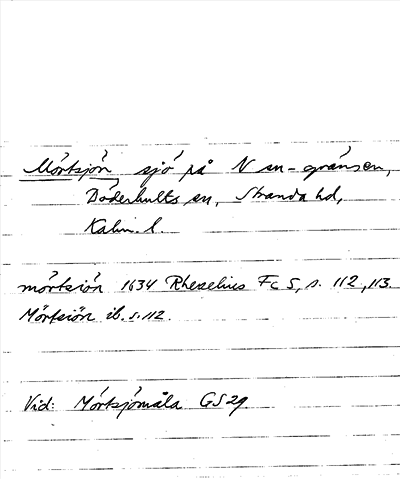 Mörtsjön sjö på N sn-gränsen,
Döderhults sn, Stranda hd,
Kalm. l.
mörtsiön 1634 Rhezelius Fc 5, s. 112, 113.
Mörtsiön ib. s. 112.
Vid: Mörtsjömåla GS 29.